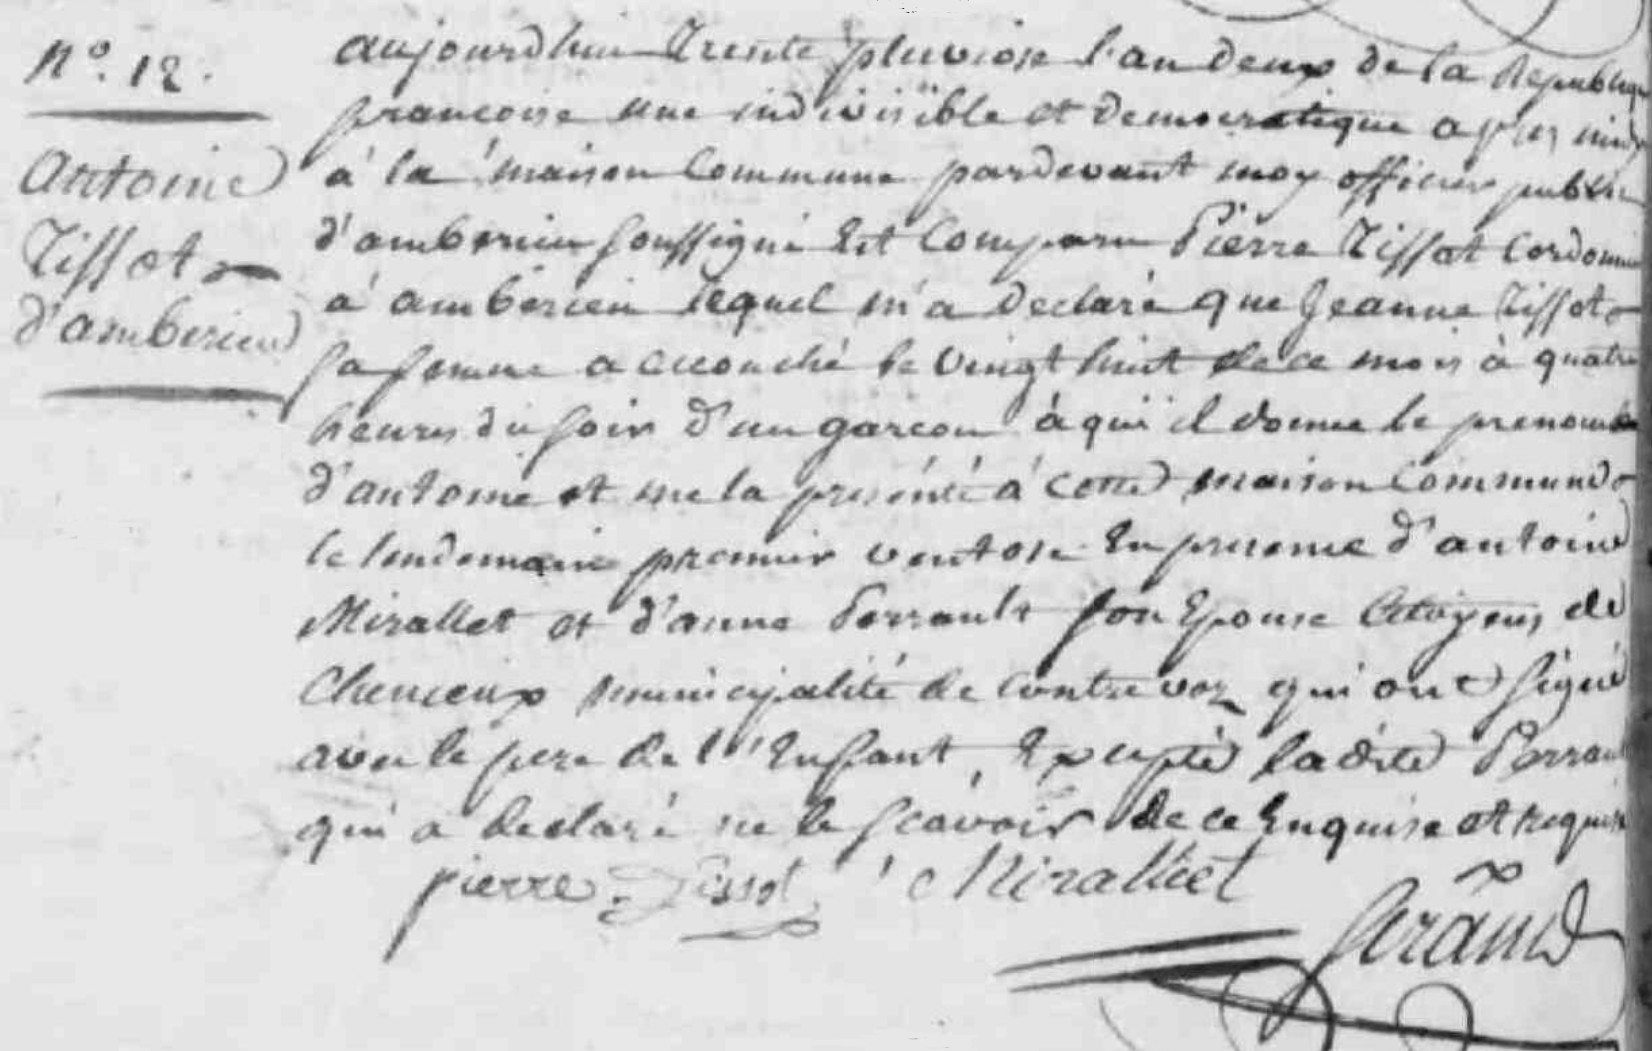 N.° 12.
Antoine
Tissot
d'amberieu
aujourdhui Trente pluviose l'an deux de la Republique
francoise une indivisible et democratique a plus midi
à la maison Commune pardevant moy officier public
d'amberieu soussigné Est Comparu Pierre Tissot Cordonnier
a amberieu lequel m'a declaré que Jeanne Tissot
sa femme a accouché le vingt huit de ce mois à quatre
heures du soir d'un garcon à qui il donne le prenom
d'antoine et me la présenté à cette maison Commune
le lendemain premier ventose En presence d'antoine
Mirallet et d'anne Perrault son Epouse Citoyens de
Chenieux municipalité de contrevoz qui ont signé
avec le pere de l'Enfant, Excepté ladite Perrault
qui a declaré ne le scavoir de ce Enquise et requise
pierre Tissot Miralliet